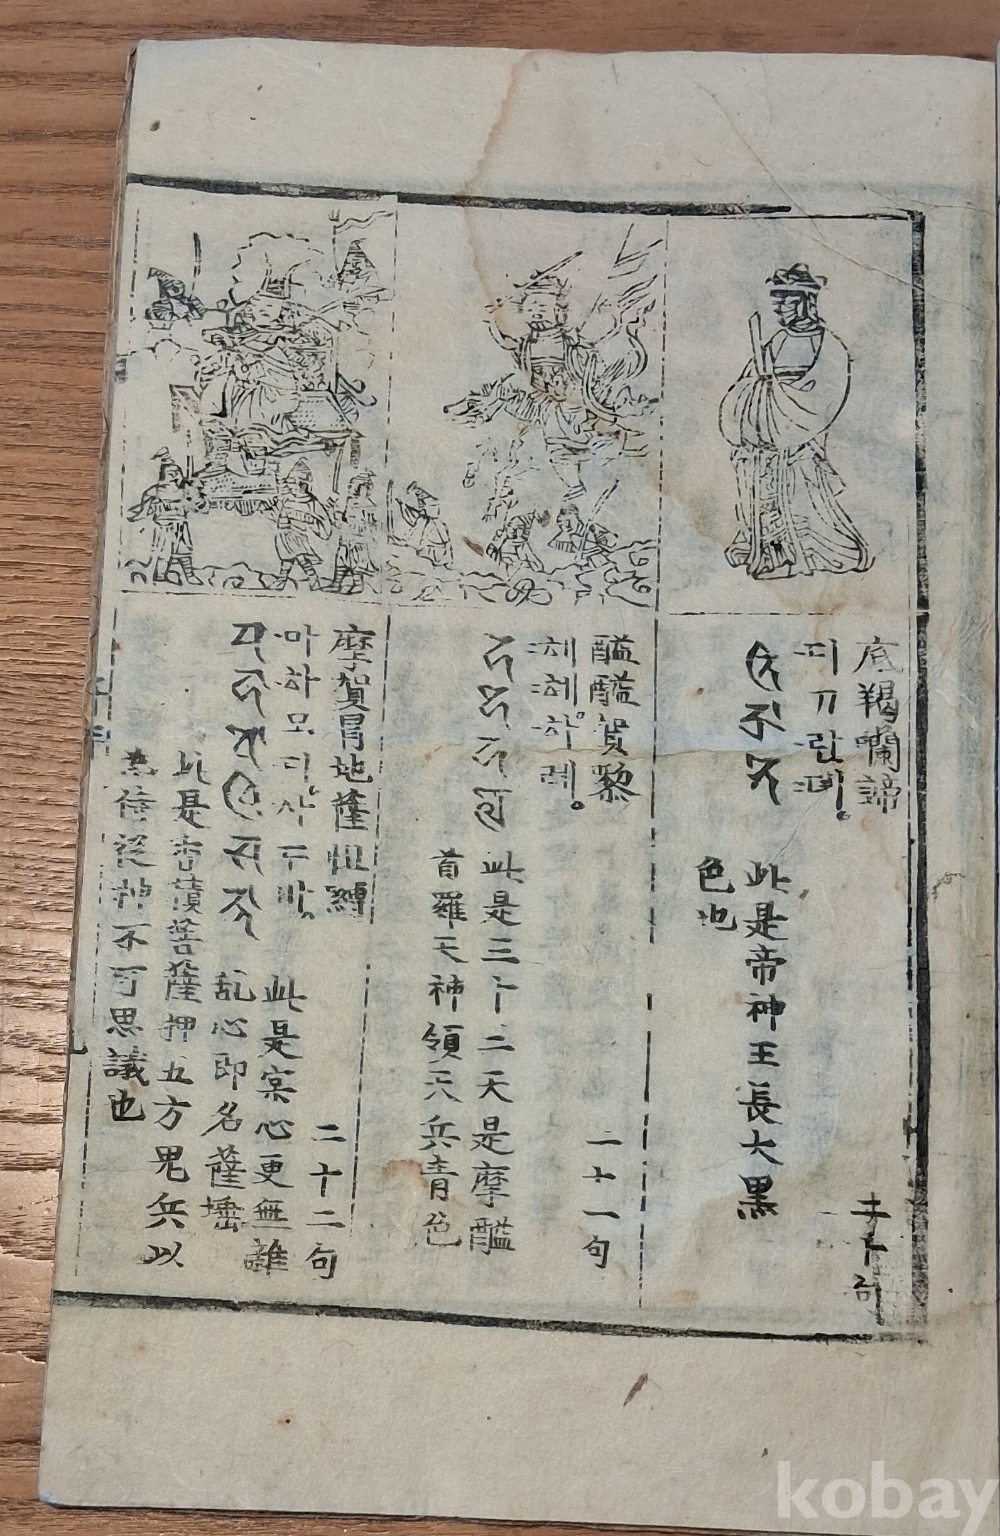 底羯囒諦
뎌ᄭᅡ란뎨。
此是帝神王長大黑
色也
二十句
醯醯賀黎
혜혜하례。
此是三十二天是摩醯
首羅天神領天兵青色
二十一句
摩賀冒地薩怛縛
마하모디사ᄃᆞ바。
此是寔心更無雜
乱心即名薩埵
此是香積菩薩押五方鬼兵以
為侍從神不可思議也
二十二句
kobay